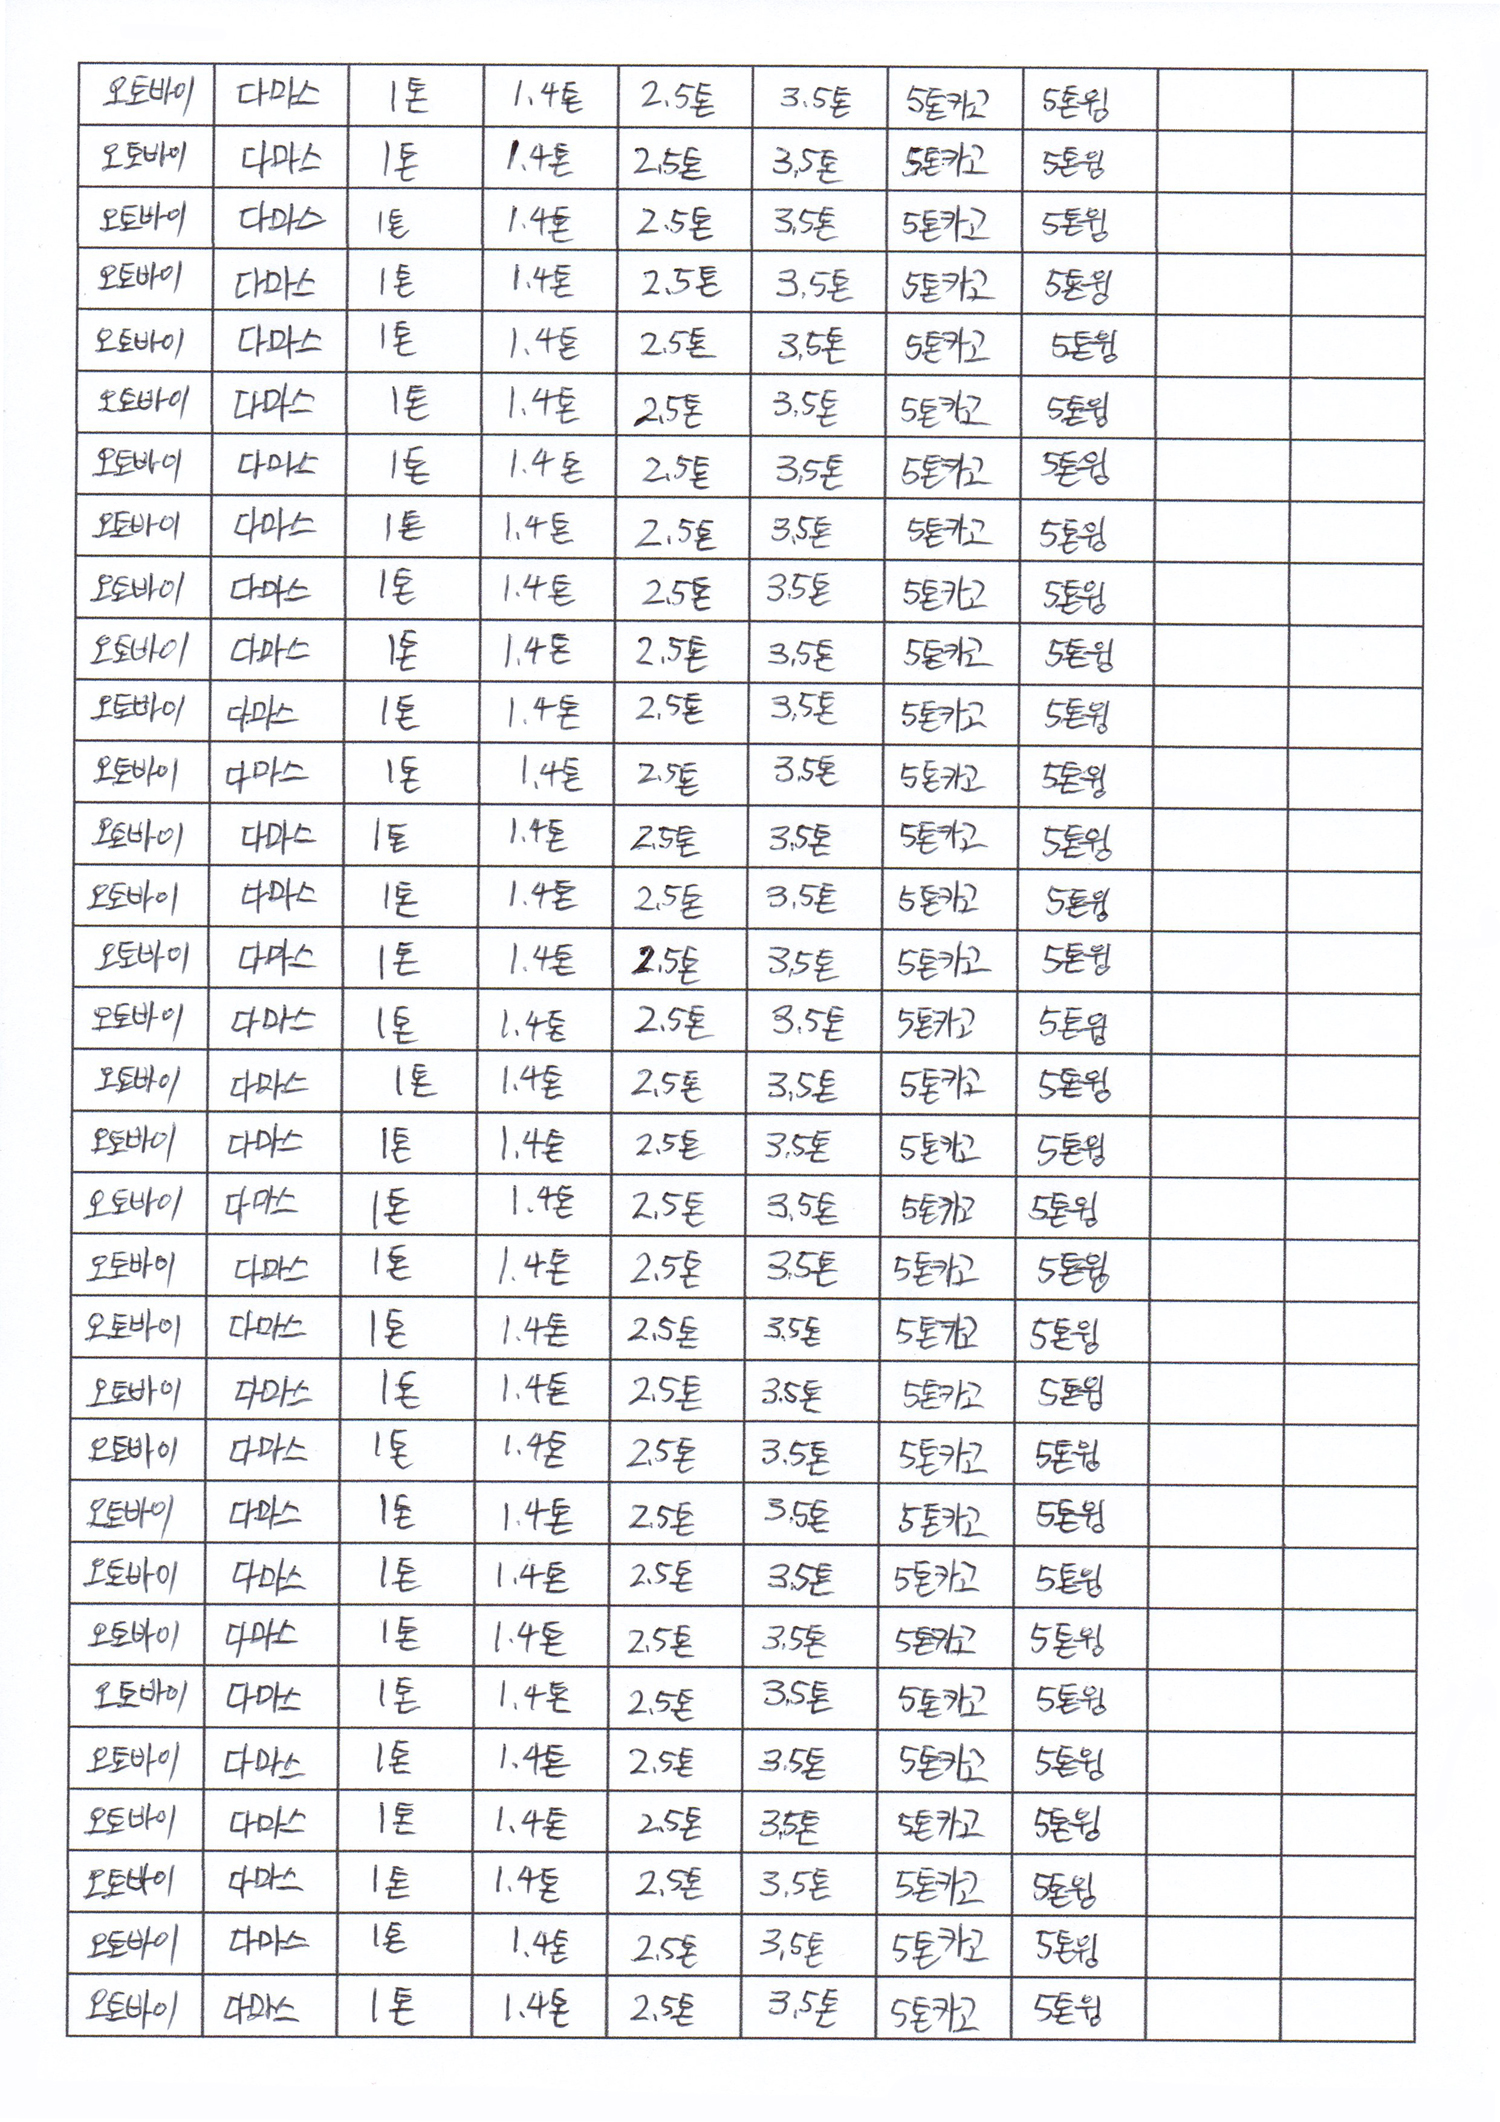 오토바이 다마스 1톤 1.4톤 2.5톤 3.5톤 5톤카고 5톤윙
오토바이 다마스 1톤 1.4톤 2.5톤 3.5톤 5톤카고 5톤윙
오토바이 다마스 1톤 1.4톤 2.5톤 3.5톤 5톤카고 5톤윙
오토바이 다마스 1톤 1.4톤 2.5톤 3.5톤 5톤카고 5톤윙
오토바이 다마스 1톤 1.4톤 2.5톤 3.5톤 5톤카고 5톤윙
오토바이 다마스 1톤 1.4톤 2.5톤 3.5톤 5톤카고 5톤윙
오토바이 다마스 1톤 1.4톤 2.5톤 3.5톤 5톤카고 5톤윙
오토바이 다마스 1톤 1.4톤 2.5톤 3.5톤 5톤카고 5톤윙
오토바이 다마스 1톤 1.4톤 2.5톤 3.5톤 5톤카고 5톤윙
오토바이 다마스 1톤 1.4톤 2.5톤 3.5톤 5톤카고 5톤윙
오토바이 다마스 1톤 1.4톤 2.5톤 3.5톤 5톤카고 5톤윙
오토바이 다마스 1톤 1.4톤 2.5톤 3.5톤 5톤카고 5톤윙
오토바이 다마스 1톤 1.4톤 2.5톤 3.5톤 5톤카고 5톤윙
오토바이 다마스 1톤 1.4톤 2.5톤 3.5톤 5톤카고 5톤윙
오토바이 다마스 1톤 1.4톤 2.5톤 3.5톤 5톤카고 5톤윙
오토바이 다마스 1톤 1.4톤 2.5톤 3.5톤 5톤카고 5톤윙
오토바이 다마스 1톤 1.4톤 2.5톤 3.5톤 5톤카고 5톤윙
오토바이 다마스 1톤 1.4톤 2.5톤 3.5톤 5톤카고 5톤윙
오토바이 다마스 1톤 1.4톤 2.5톤 3.5톤 5톤카고 5톤윙
오토바이 다마스 1톤 1.4톤 2.5톤 3.5톤 5톤카고 5톤윙
오토바이 다마스 1톤 1.4톤 2.5톤 3.5톤 5톤카고 5톤윙
오토바이 다마스 1톤 1.4톤 2.5톤 3.5톤 5톤카고 5톤윙
오토바이 다마스 1톤 1.4톤 2.5톤 3.5톤 5톤카고 5톤윙
오토바이 다마스 1톤 1.4톤 2.5톤 3.5톤 5톤카고 5톤윙
오토바이 다마스 1톤 1.4톤 2.5톤 3.5톤 5톤카고 5톤윙
오토바이 다마스 1톤 1.4톤 2.5톤 3.5톤 5톤카고 5톤윙
오토바이 다마스 1톤 1.4톤 2.5톤 3.5톤 5톤카고 5톤윙
오토바이 다마스 1톤 1.4톤 2.5톤 3.5톤 5톤카고 5톤윙
오토바이 다마스 1톤 1.4톤 2.5톤 3.5톤 5톤카고 5톤윙
오토바이 다마스 1톤 1.4톤 2.5톤 3.5톤 5톤카고 5톤윙
오토바이 다마스 1톤 1.4톤 2.5톤 3.5톤 5톤카고 5톤윙
오토바이 다마스 1톤 1.4톤 2.5톤 3.5톤 5톤카고 5톤윙